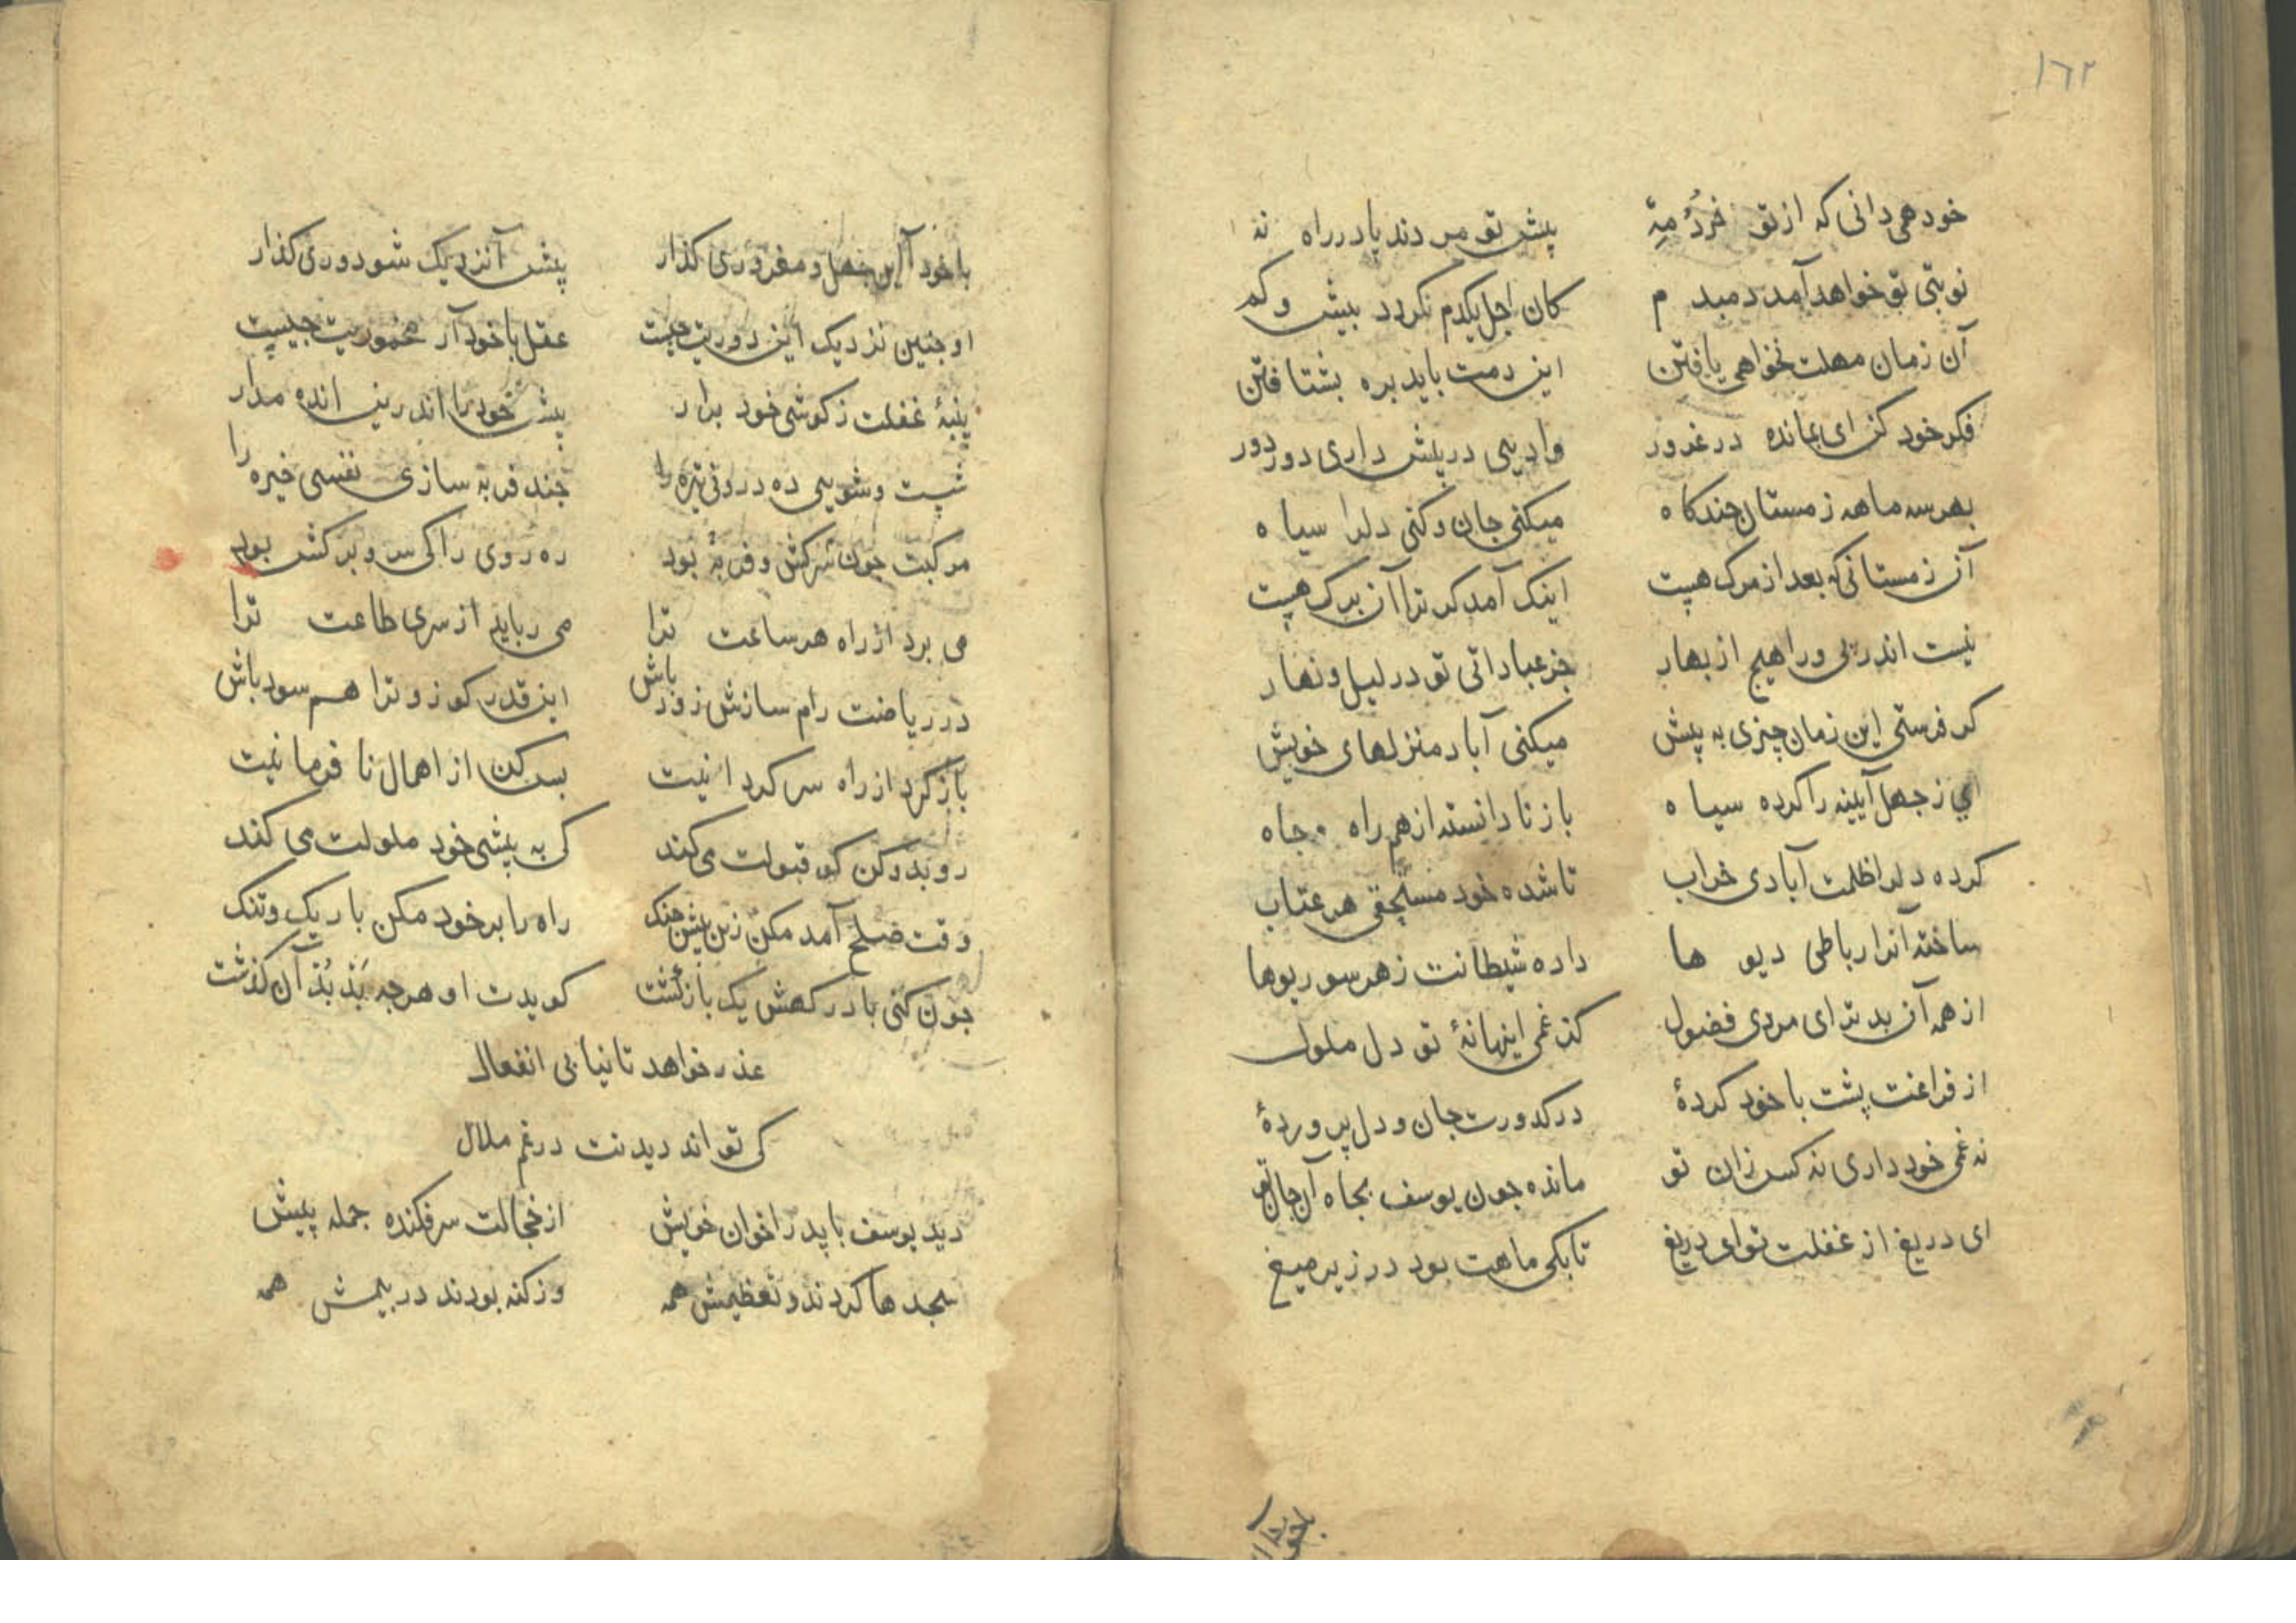 ١٦٢
خود همی دانی که از تو خُردُ مِهْ پیش تو مردند پا در راه نه
نوبتی تو خواهد آمد دمبد م کان اجل یکدم نکردد بیش و کم
آن زمان مهلت نخواهی یافتن این دمت باید بره بشتافتن
فکر خود کن ای بمانده در غرور وادیی در پیش داری دور دور
بهر سه ماهه زمستان چند کاه میکنی جان و کنی دلرا سیاه
آن زمستانی که بعد از مرک هست اینک آمد کر ترا آن برک هست
نیست اندر پی ورا هیچ از بهار جز عباداتی تو در لیل و نهار
کر فرستی این زمان چیزی به پیش میکنی آباد منزلهای خویش
ای ز جهل آیینه را کرده سیاه باز نا دانسته از هم راه جاه
کرده دلرا ظلمت آبادی خراب تا شده خود مستحقی هر عتاب
ساخته آنرا رباطی دیو ها داده شیطانت ز هر سو ریوها
از همه آن بد تر ای مردی فضول کز غمی اینها نهٔ تو دل ملول
از فراغت پشت با خود کردهٔ در کدورت جان و دل پروردهٔ
نه غمی خود داری نه کس زان تو مانده جون یوسف بجاه آن جان تو
ای دریغ از غفلت تو ای دریغ تا بکی ماهت بود در زیر میغ
با خود آ این جهل و مغروری کذار پیش آ نزدیک شو دوری کذار
او جنین نزدیک این دوریت جیست عقل با خود آر مخموریت جیست
پنبهٔ غفلت ز کوشی خود برار پیش خود را اندرین انده مدار
شست و شویی ده درونی تیره را جند فربه سازی نفسی خیره را
مرکبت جون سرکش و فربهٔ بود ره روی را کی سر و برکش بود
می برد از راه هر ساعت ترا می رباید از سری طاعت ترا
در ریاضت رام سازش زود باش این قدر کو زو ترا هم سود باش
باز کرد از راه سر کردانیت بس کن از اهمال نا فرمانیت
رو بدو کن کو قبولت می کند کی به پیشی خود ملولت می کند
وقت صلح آمد مکن زین بیش جنک راه را بر خود مکن باریک و تنک
جون کنی با درکهش یک بازکشت کویدت او هرجه بَد بُد آن کذشت
عذر خواهد تا نیابی انفعال
کی تواند دیدنت در غم ملال
دید یوسف با پدر اخوان خویش از خجالت سر فکنده جمله پیش
سجد ها کردند و تعظیمش همه وز کنه بودند در بیمش همه